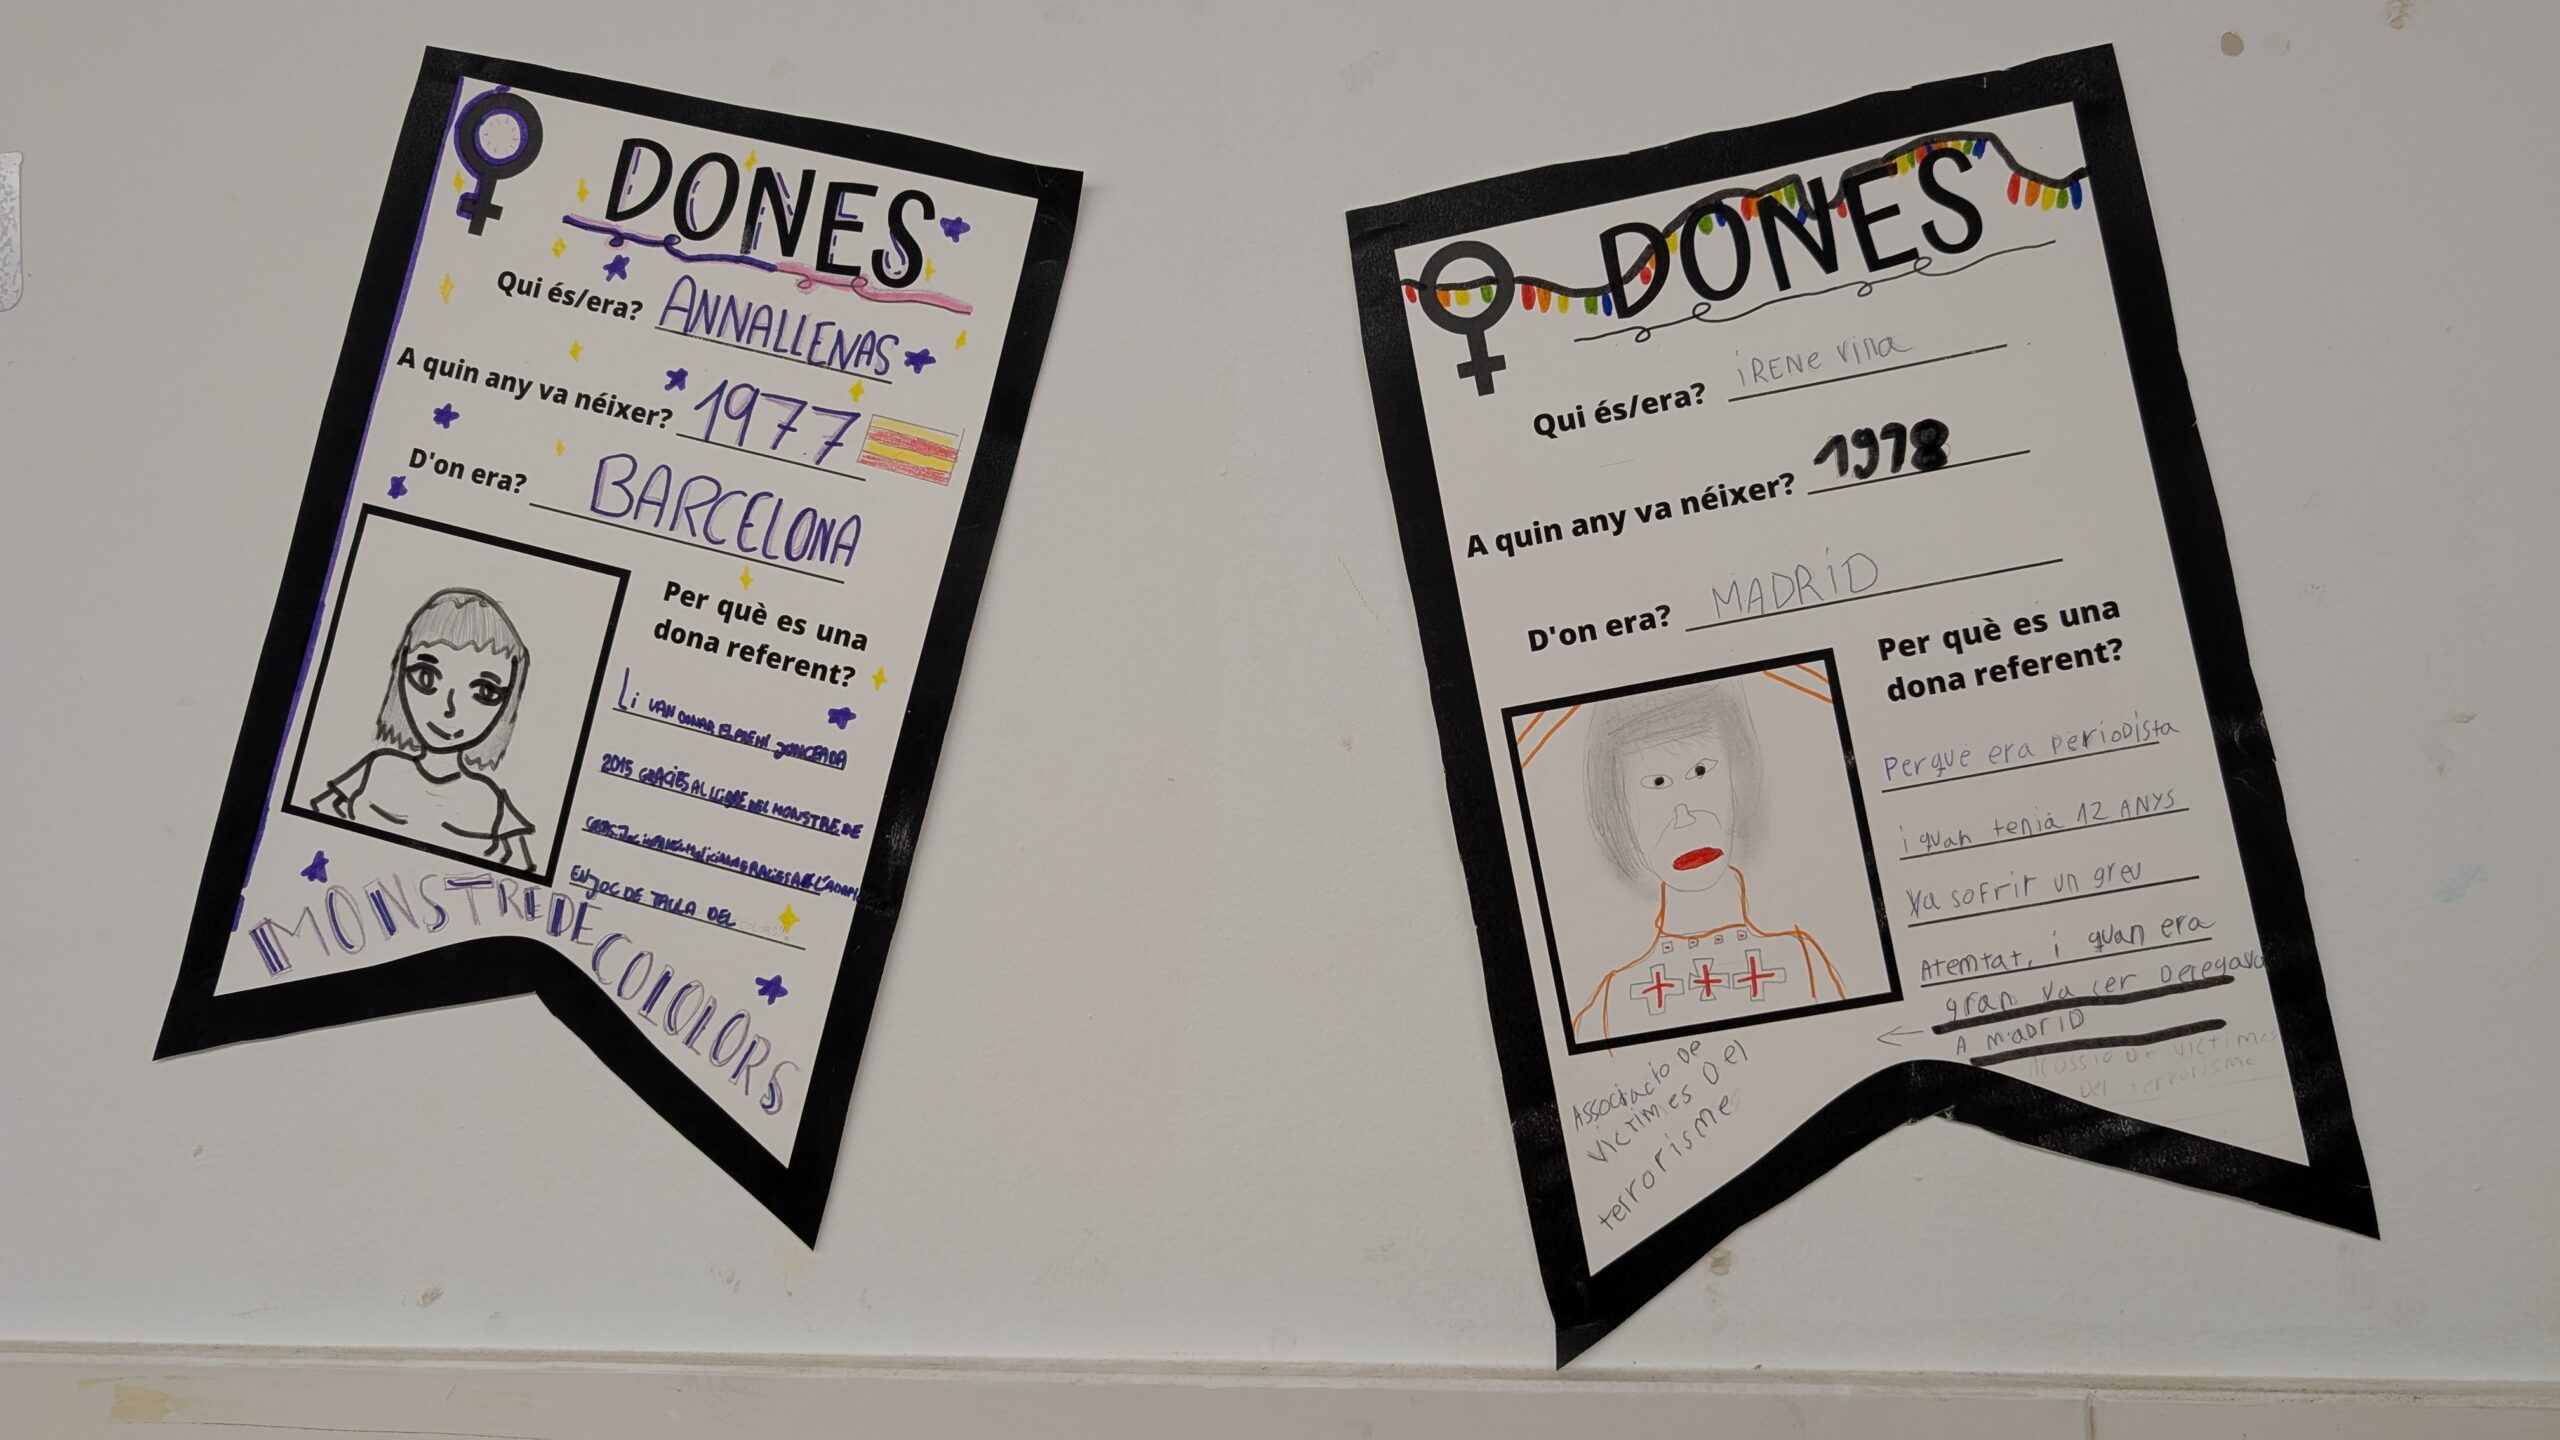 DONES
Qui és/era? ANNALLENAS
A quin any va néixer? 1977
D'on era? BARCELONA
Per què es una
dona referent?
Li VAN DONAR EL PREMI JUNCEDA
2015 GRACIES AL LLIBRE DEL MONSTRE DE
EN JOC DE TAULA DEL
MONSTRE DE COLOLORS
DONES
Qui és/era? iRENe viLLa
A quin any va néixer? 1978
D'on era? MADRiD
Per què es una
dona referent?
Perque era PerioDista
i quan tenia 12 ANYS
Va sofrir un greu
Atemtat, i quan era
gran va ser Delegava
A MaDRiD
Acossio De victimes
Del terrorisme
Associacio De
victimes Del
terrorisme